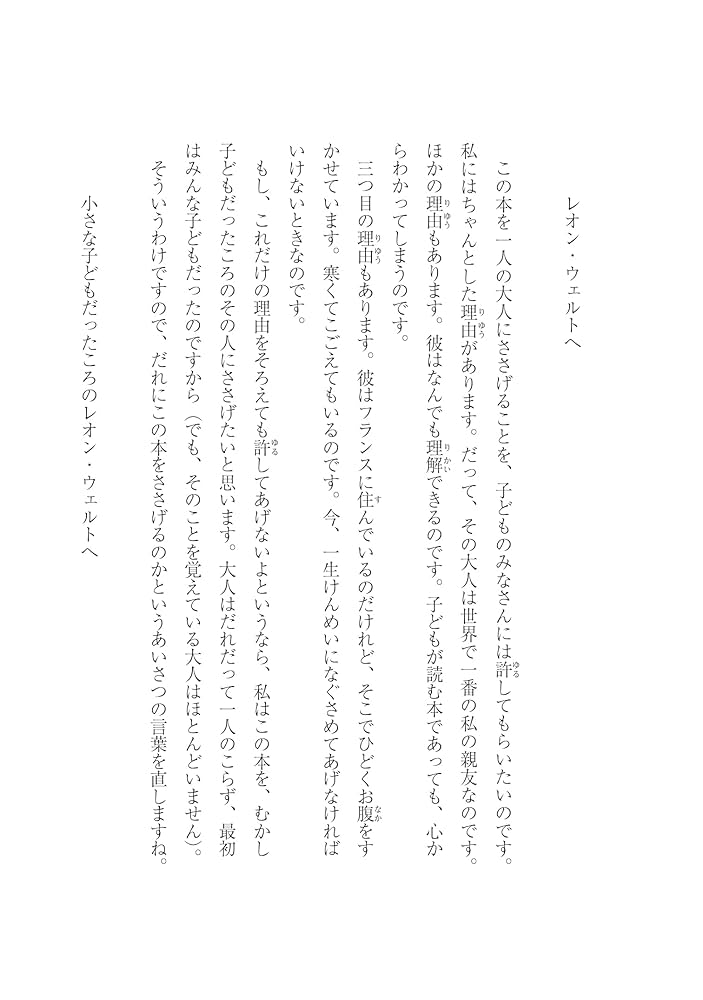 レオン・ウェルトへ
この本を一人の大人にささげることを、子どものみなさんには許してもらいたいのです。
私にはちゃんとした理由があります。だって、その大人は世界で一番の私の親友なのです。
ほかの理由もあります。彼はなんでも理解できるのです。子どもが読む本であっても、心か
らわかってしまうのです。
三つ目の理由もあります。彼はフランスに住んでいるのだけれど、そこでひどくお腹をす
かせています。寒くてこごえてもいるのです。今、一生けんめいになぐさめてあげなければ
いけないときなのです。
もし、これだけの理由をそろえても許してあげないよというなら、私はこの本を、むかし
子どもだったころのその人にささげたいと思います。大人はだれだって一人のこらず、最初
はみんな子どもだったのですから（でも、そのことを覚えている大人はほとんどいません）。
そういうわけですので、だれにこの本をささげるのかというあいさつの言葉を直しますね。
小さな子どもだったころのレオン・ウェルトへ